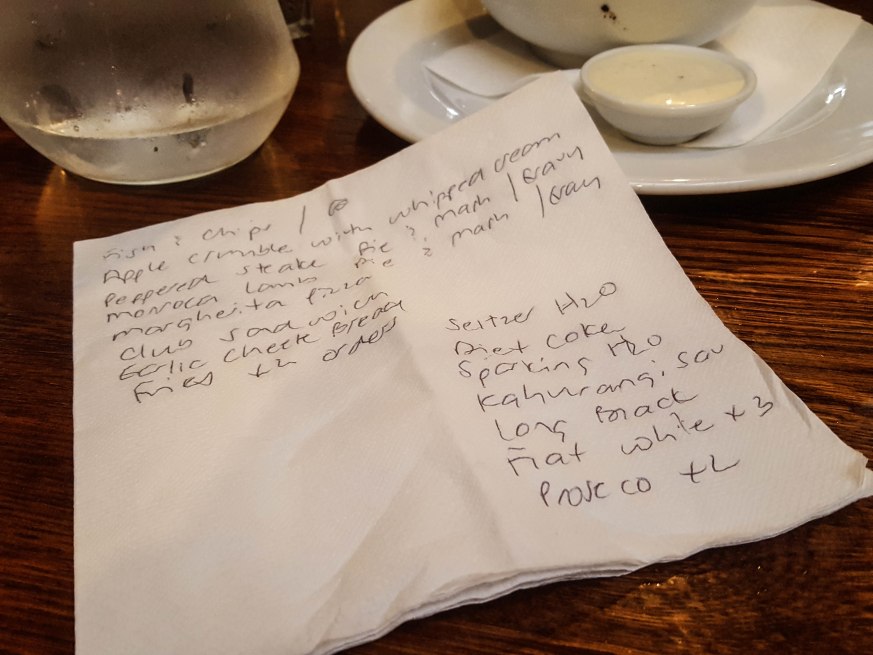 Fish & Chips /
Apple crumble with whipped cream
Peppered steake Pie & mash / Gravy
monroca Lamb Pie & mash / Gray
margherita Pizza
Club Sadwich
Garlic Cheese Bread
Fries x2 orders
Seltzer H2O
Diet Coke
Sparking H2O
Kahurangi Sav
Long Black
Flat white x 3
Prosecco x2